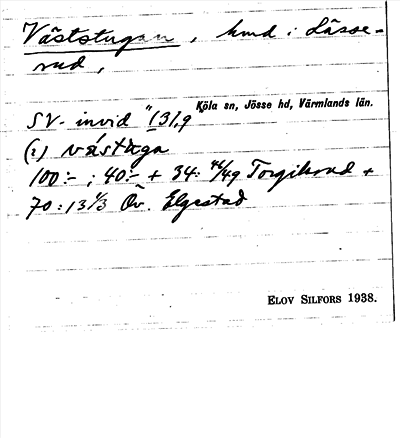 Väststugan, hmd i Lässe-
rud,
Köla sn, Jösse hd, Värmlands län.
SV. invid "131,9"
(i) västuga
100:- ; 40:- + 34: 46/49 Torgilsrud +
70:13 1/3 Öv. Elgestad
ELOV SILFORS 1938.